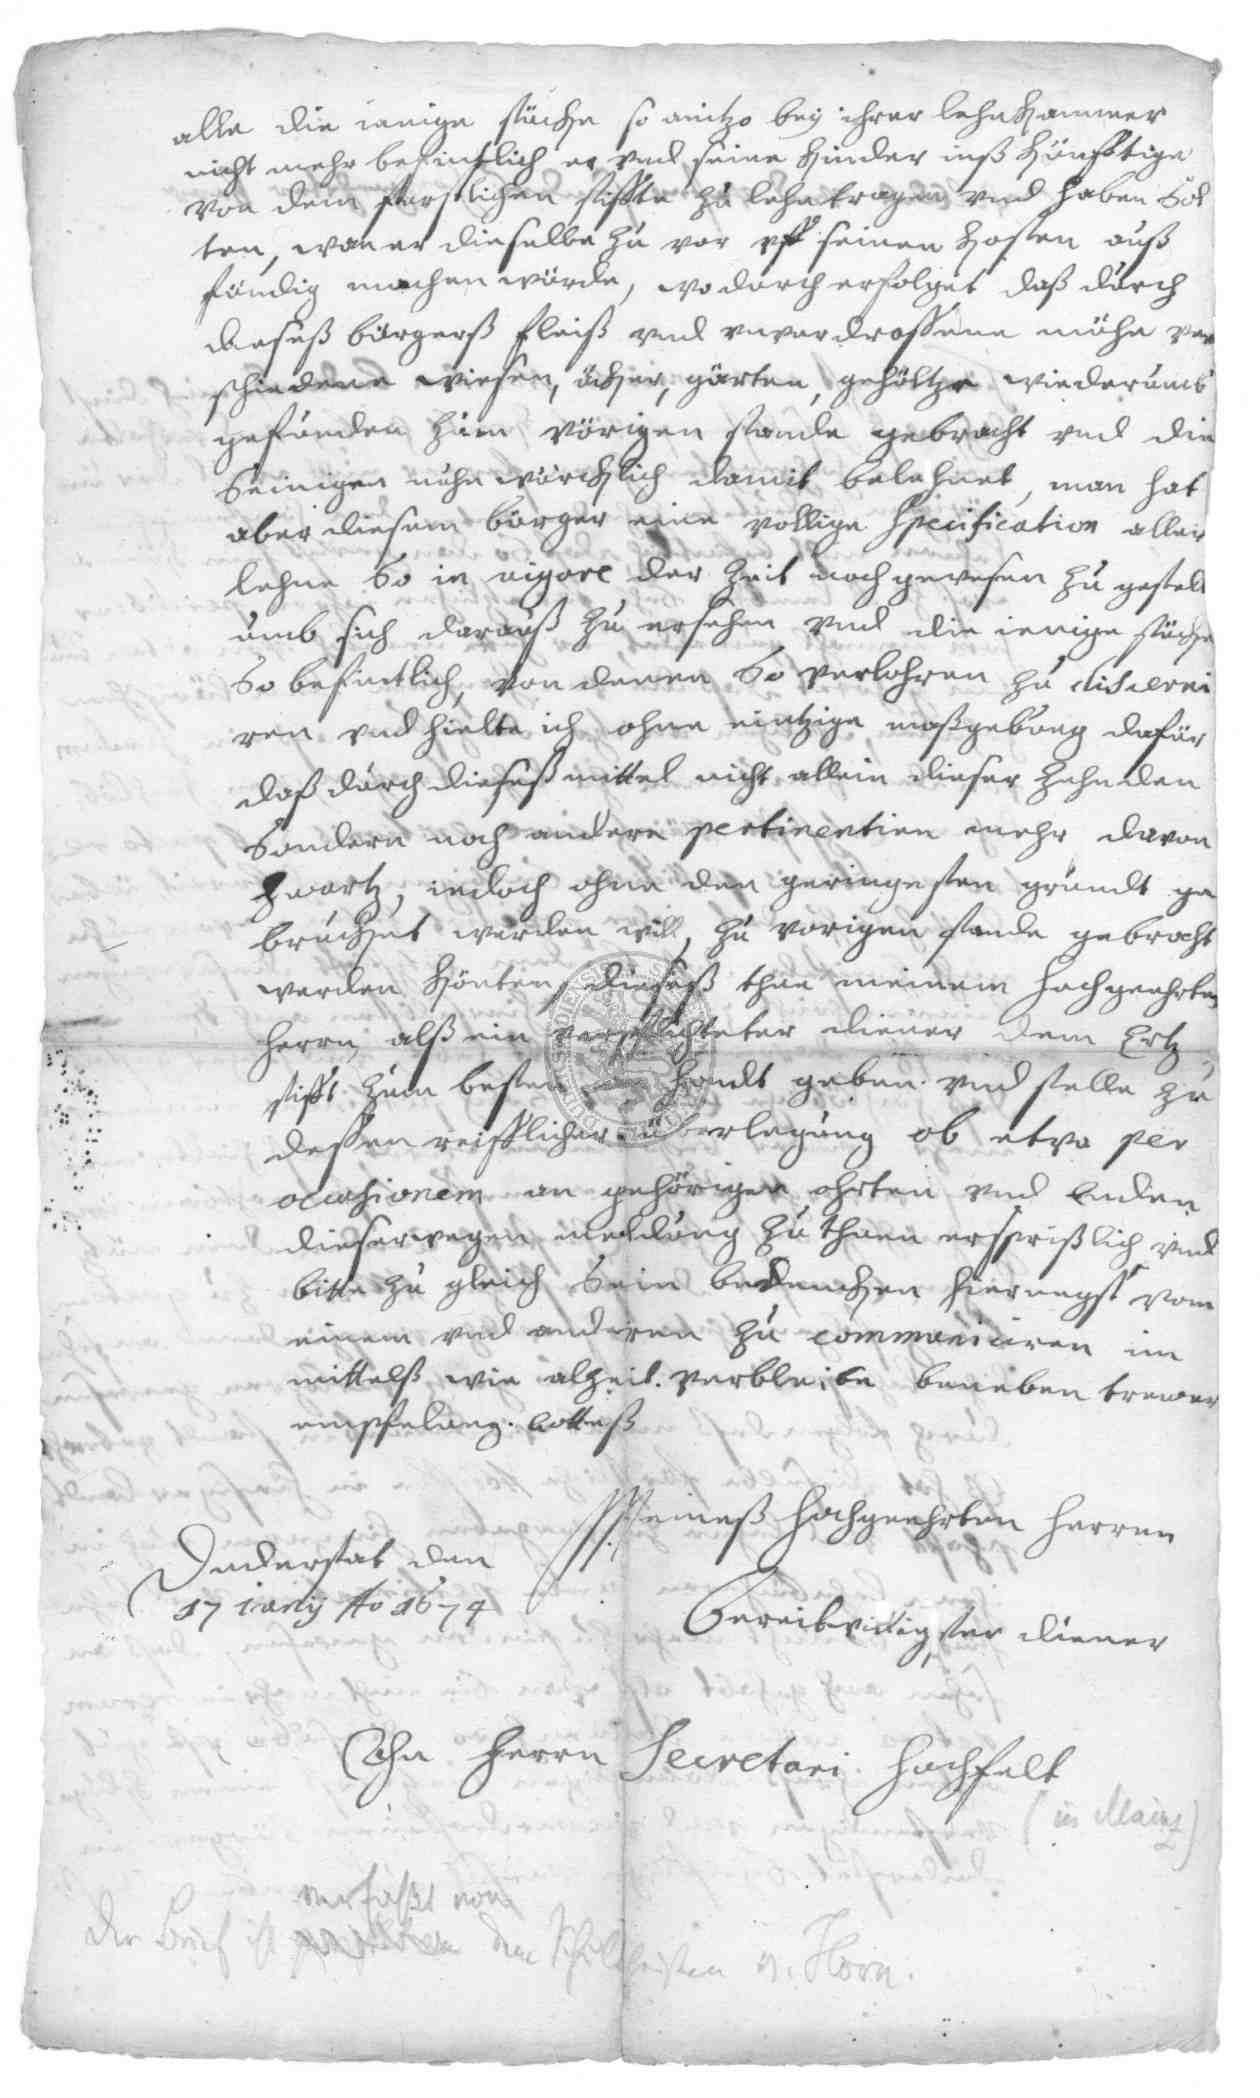 alle die ienige stücke so anitzo bey ihrer lehn Kammer
nicht mehr befintlich er vnd seine Kinder inß Künfftige
von dem fürstlichen stiffte zu lehn tragen vnd haben Sol
ten, wan er dieselbe zu vor vff seinen Kosten auß
fündig machen würde, wodurch erfolget daß durch
dieseß bürgerß fleiß vnd vnverdrossene mühe ver
schiedene wiesen, äcker, gärten, gehöltze wiederumb
gefunden zum vörigen stande gebracht vnd die
Seinigen nuhn würcklich damit belehnet, man hat
aber diesem bürger eine vollige Specification aller
lehne So in vigore der Zeit noch gewesen zu gestelt
umb sich darauß zu ersehen vnd die ienige stücke
So befintlich, von denen So verlohren zu discerni
ren vnd hielte ich ohne eintzige maßgebung dafür
daß durch dieseß mittel nicht allein dieser Zehnden
Sondern noch andere pertinentien mehr davon
Zwartz, iedoch ohne den geringesten grundt ge
werden will, zu vorigen stande gebracht
werden Könten, dieseß thue meinem hochgeehrten
herrn, alß ein verpflichteter diener dem Ertz
stifft zum besten handt geben vnd stelle zu
dessen reifflicher überlegung ob etwa per
occasionem an gehörigen ohrten vnd Enden
dieserwegen meldung zu thuen ersprißlich vnd
bitte zu gleich Sein bedencken hiernegst vom
einem vnd anderen zu communiciren im
mittelß wie alzeit verbleibe beneben trewer
empfelung Gotteß
Meineß hochgeehrten herren
Duderstat den
17 iunij Ao 1674
Bereitwilligster diener
Ahn Herrn Secretari Hochfelt
(in Mainz)
verfaßt von
Der Brief ist dem Schultheißen v. Horn.